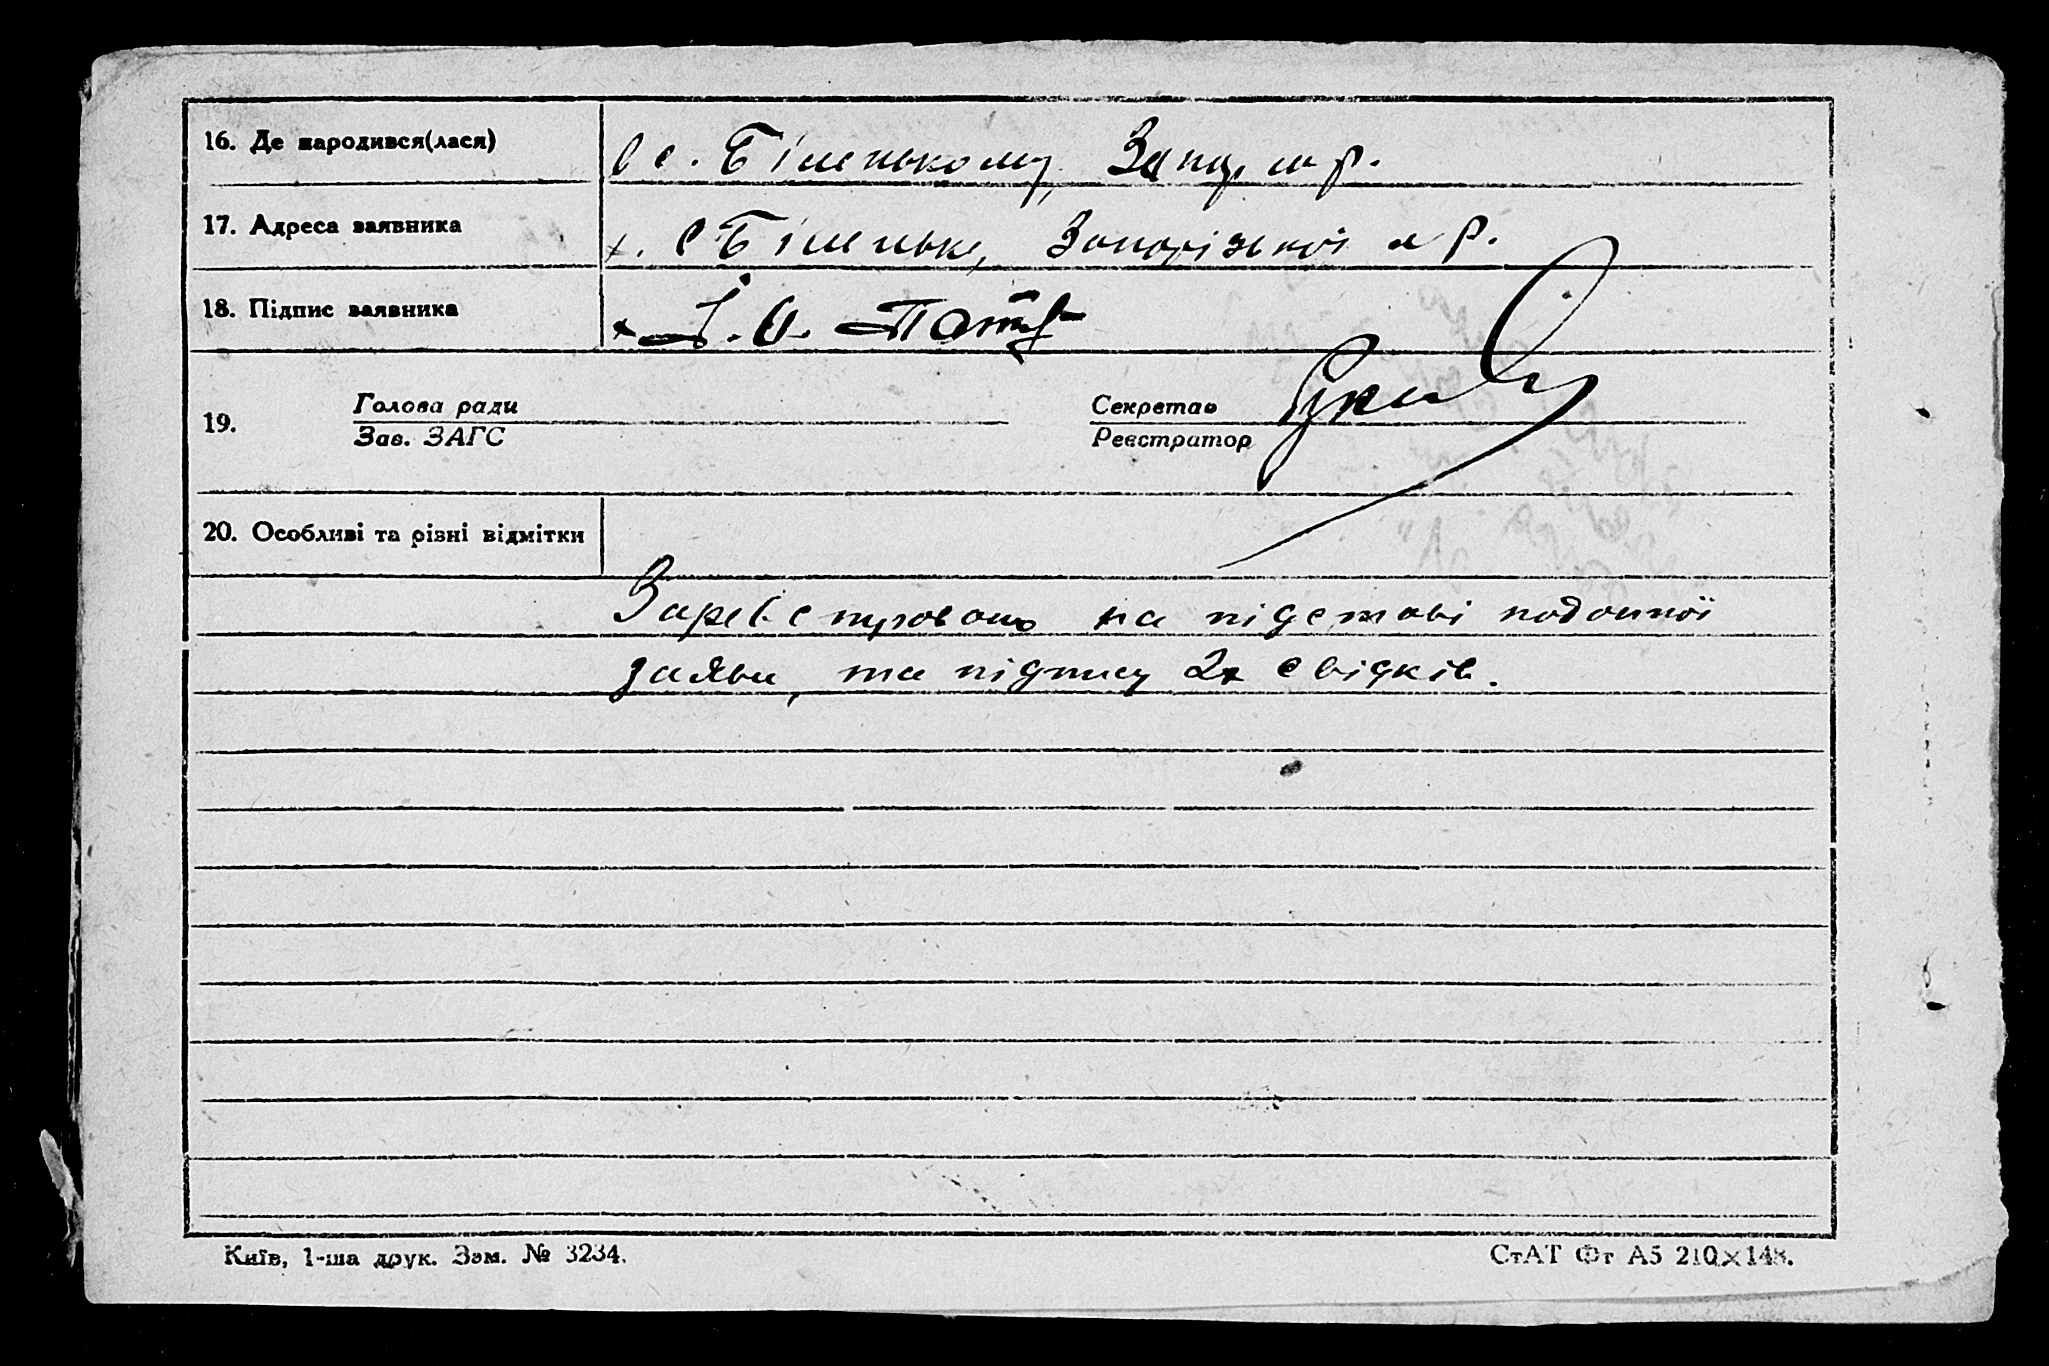 16. Де народився(лася) В с. Біленькому, Запор. м р.
17. Адреса заявника х. с Біленьке, Запорізької м р.
18. Підпис заявника
19. Голова ради Секретар
Зав. ЗАГС Реєстратор
20. Особливі та різні відмітки
Зареєстровано на підставі поданної
заяви, та підпису 2х свідків.
Київ, 1-ша друк. Зам. № 3234. СтАТ Фт А5 210×148.